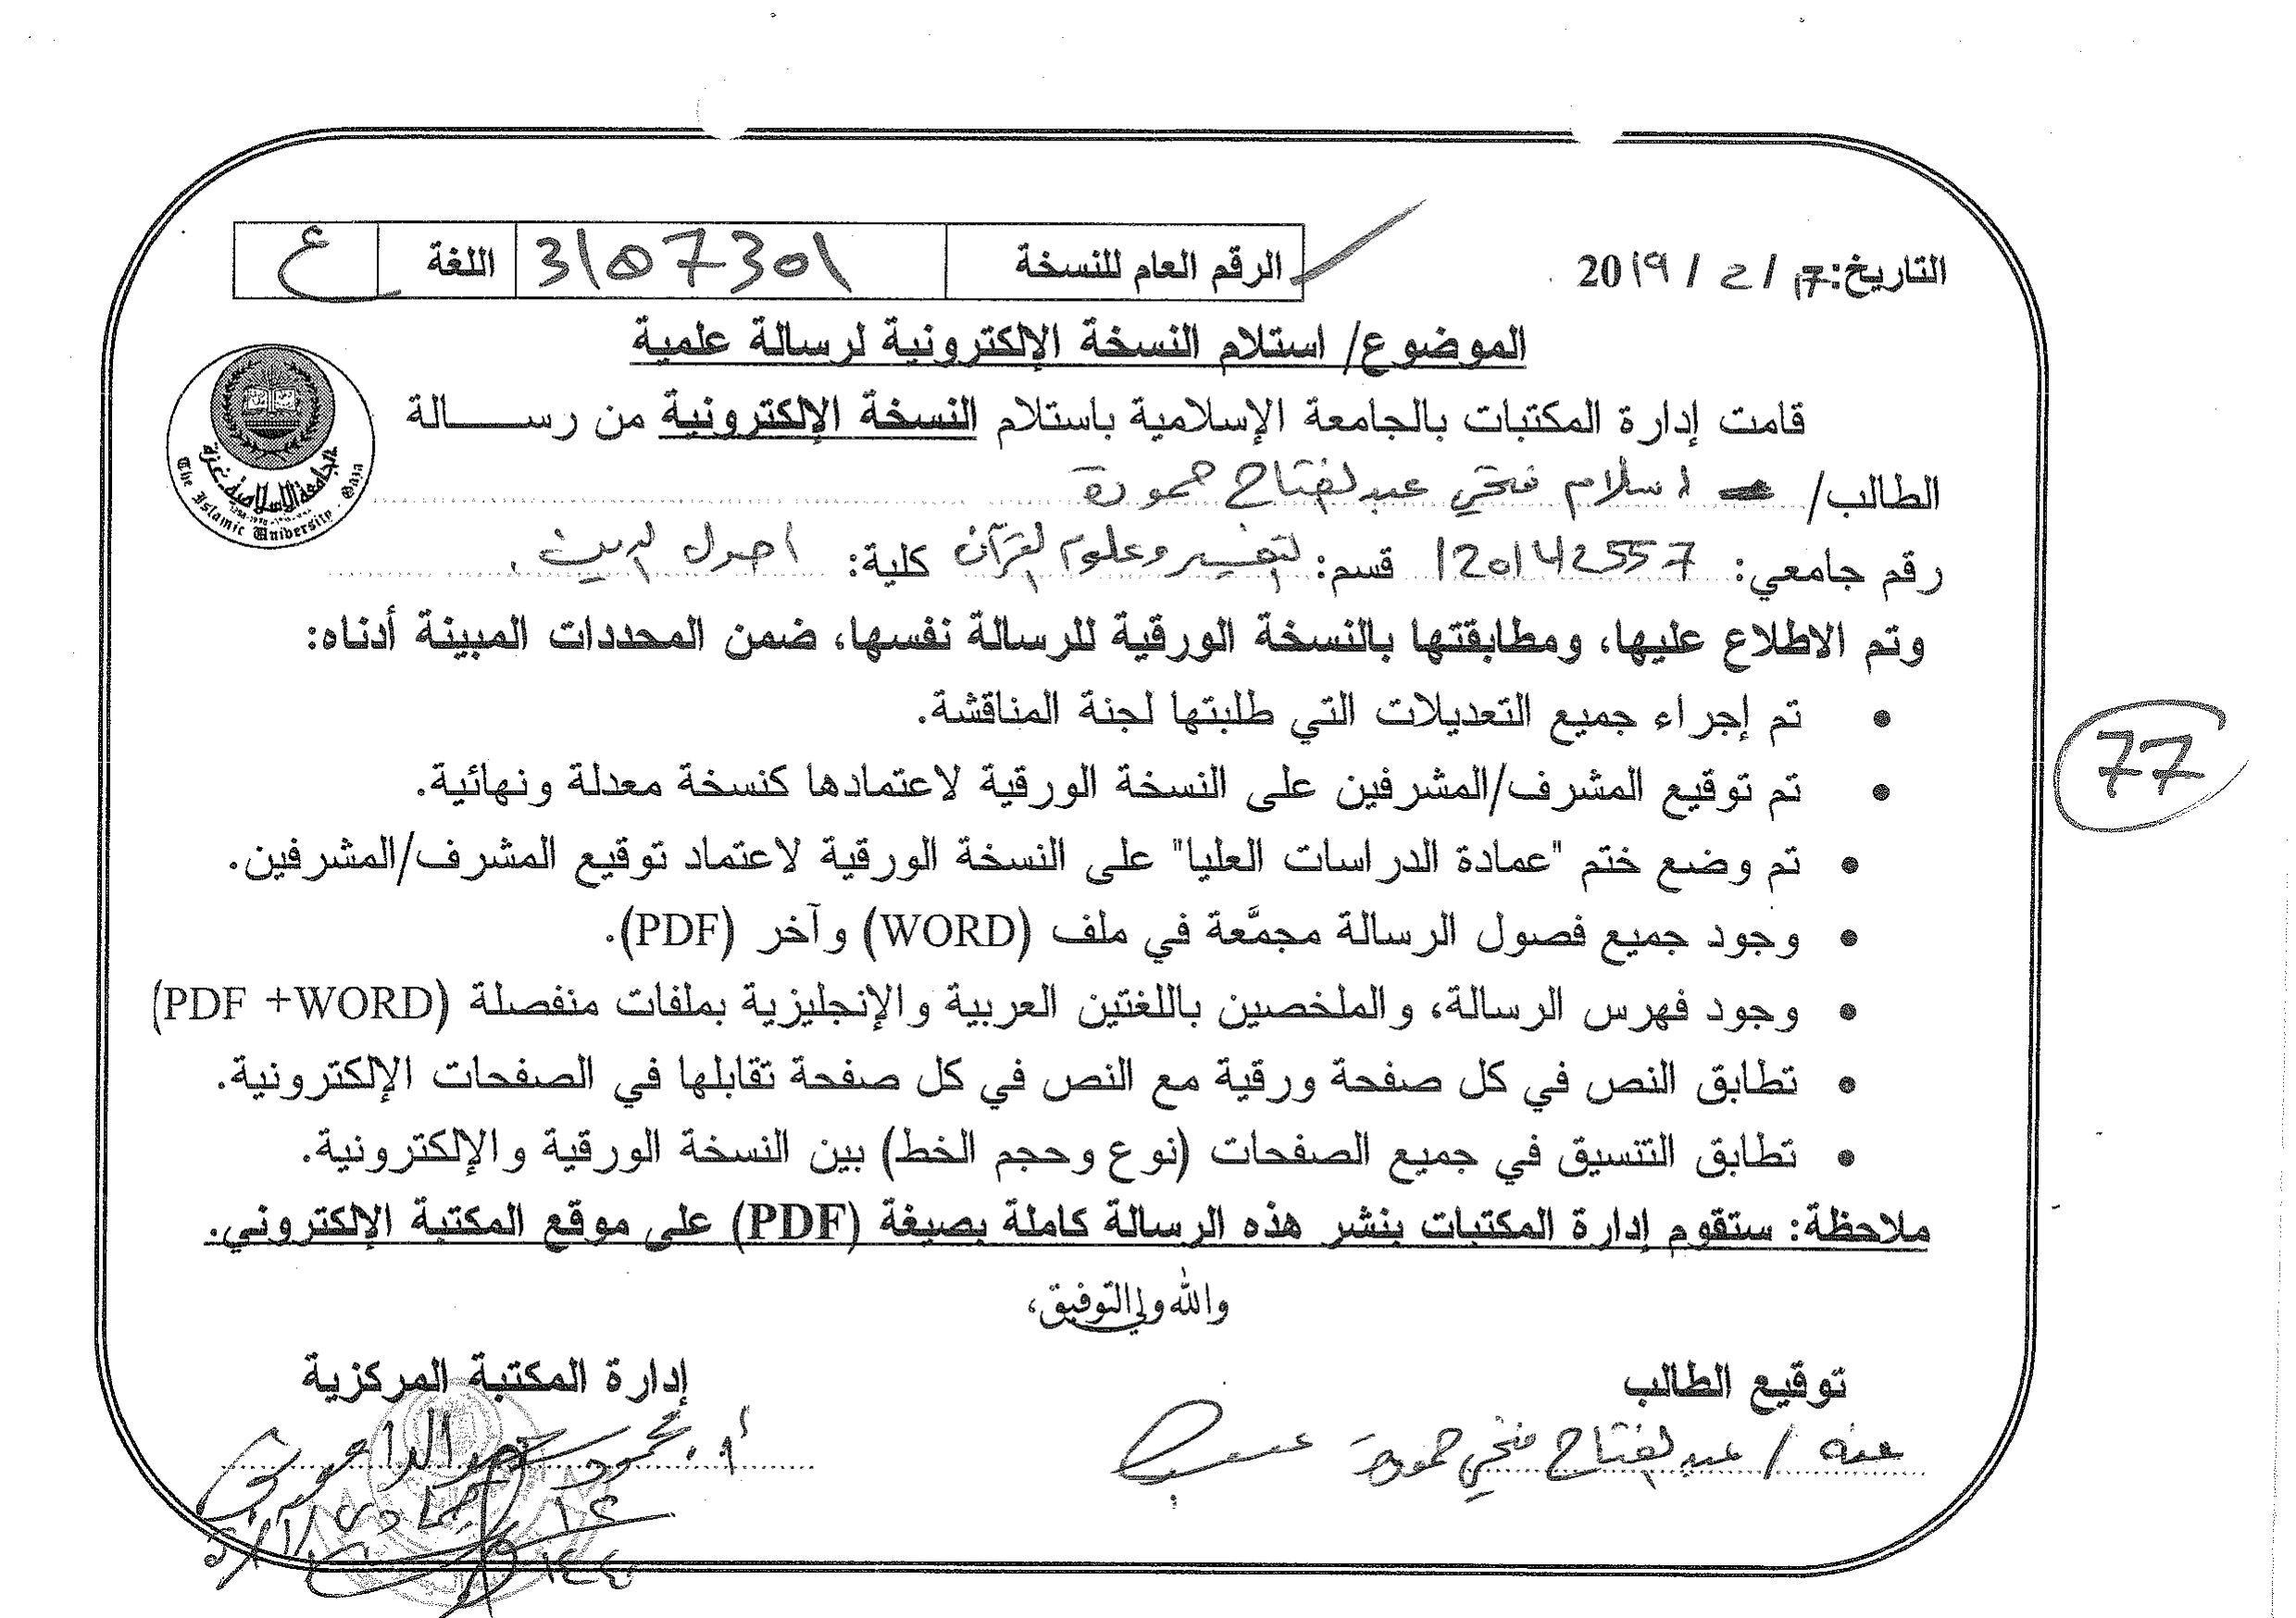 التاريخ: 17 / 2 / 2019
الرقم العام للنسخة 3107301 اللغة ع
الموضوع/ استلام النسخة الإلكترونية لرسالة علمية
قامت إدارة المكتبات بالجامعة الإسلامية باستلام النسخة الإلكترونية من رســـــالة
الطالب/ اسلام فتحي عبد الفتاح حمودة
رقم جامعي: 120142557 قسم: التفسير وعلوم القرآن كلية: أصول الدين.
وتم الاطلاع عليها، ومطابقتها بالنسخة الورقية للرسالة نفسها، ضمن المحددات المبينة أدناه:
• تم إجراء جميع التعديلات التي طلبتها لجنة المناقشة.
• تم توقيع المشرف/المشرفين على النسخة الورقية لاعتمادها كنسخة معدلة ونهائية.
• تم وضع ختم "عمادة الدراسات العليا" على النسخة الورقية لاعتماد توقيع المشرف/المشرفين.
• وجود جميع فصول الرسالة مجمَّعة في ملف (WORD) وآخر (PDF).
• وجود فهرس الرسالة، والملخصين باللغتين العربية والإنجليزية بملفات منفصلة (PDF +WORD)
• تطابق النص في كل صفحة ورقية مع النص في كل صفحة تقابلها في الصفحات الإلكترونية.
• تطابق التنسيق في جميع الصفحات (نوع وحجم الخط) بين النسخة الورقية والإلكترونية.
ملاحظة: ستقوم إدارة المكتبات بنشر هذه الرسالة كاملة بصيغة (PDF) على موقع المكتبة الإلكتروني.
والله ولي التوفيق،
توقيع الطالب
عنه / عبد الفتاح فتحي حمودة
إدارة المكتبة المركزية
أ. محمود
77
الجامعة الإسلامية غزة
The Islamic University - Gaza